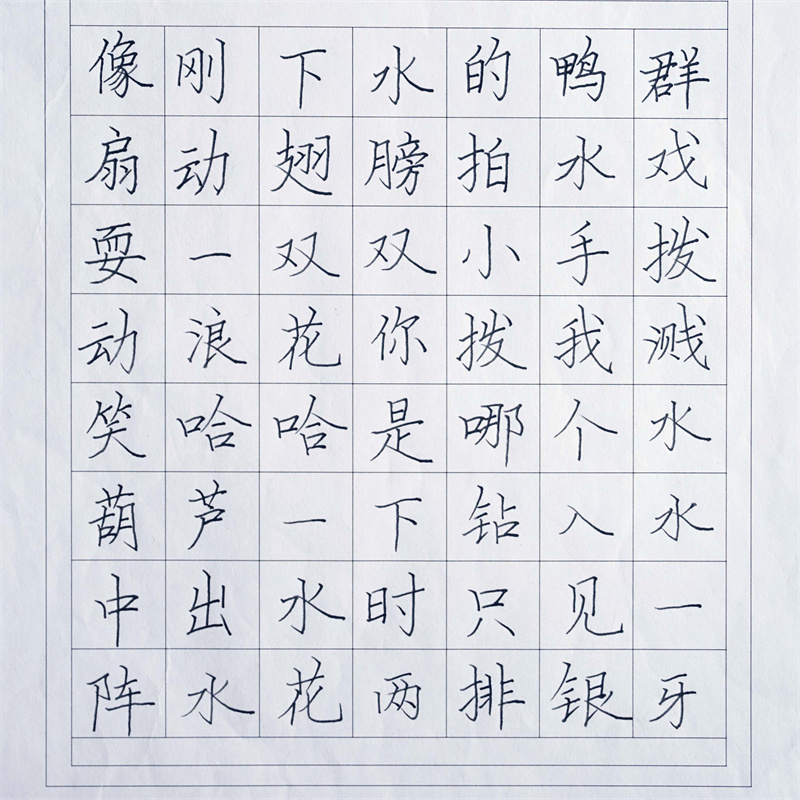 像刚下水的鸭群
扇动翅膀拍水戏
耍一双双小手拨
动浪花你拨我溅
笑哈哈是哪个水
葫芦一下钻入水
中出水时只见一
阵水花两排银牙